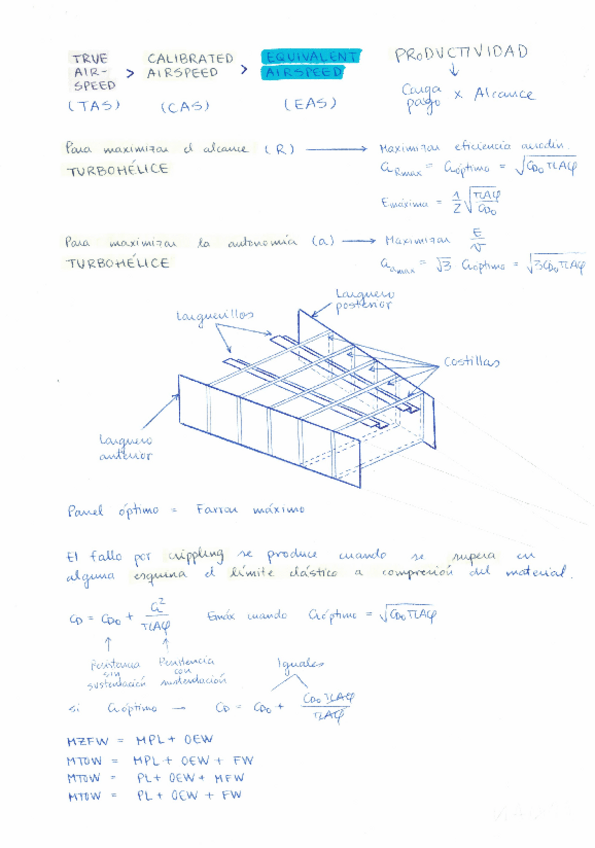 TRUE AIR-SPEED > CALIBRATED AIRSPEED > EQUIVALENT AIRSPEED
(TAS) (CAS) (EAS)
PRODUCTIVIDAD
↓
Carga pago x Alcance
Para maximizar el alcance (R) → Maximizar eficiencia aerodin.
TURBOHÉLICE
CL Rmax = CLóptimo = √CD0 πAφ
Emáxima = 1/2 √πAφ/CD0
Para maximizar la autonomía (a) → Maximizar E/v
TURBOHÉLICE
CL amax = √3 CLóptimo = √3CD0 πAφ
Larguero posterior
Larguerillos
Costillas
Larguero anterior
Panel óptimo = Farrar máximo
El fallo por crippling se produce cuando se supera en
alguna esquina el límite elástico a compresión del material.
CD = CD0 + CL²/πAφ Emáx cuando CLóptimo = √CD0 πAφ
Resistencia sin sustentación
Resistencia con sustentación
Iguales
si CLóptimo → CD = CD0 + CD0 πAφ/πAφ
MZFW = MPL + OEW
MTOW = MPL + OEW + FW
MTOW = PL + OEW + MFW
MTOW = PL + OEW + FW